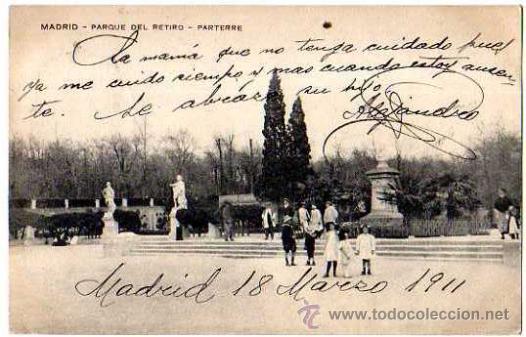 MADRID - PARQUE DEL RETIRO - PARTERRE
La mamá que no tenga cuidado pues
ya me cuido siempo y mas cuando estoy ausen-
te. Le abraza su hijo
Alejandro
Madrid 18 Marzo 1911
www.todocoleccion.net